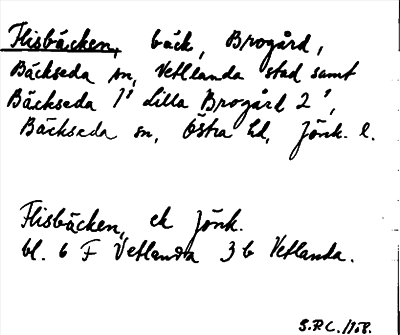 Flisbäcken, bäck, Brogård,
Bäckseda sn, Vetlanda stad samt
Bäckseda 1' Lilla Brogård 2',
Bäckseda sn, Östra hd, Jönk. l.
Flisbäcken, ek Jönk.
bl. 6 F Vetlanda 3b Vetlanda.